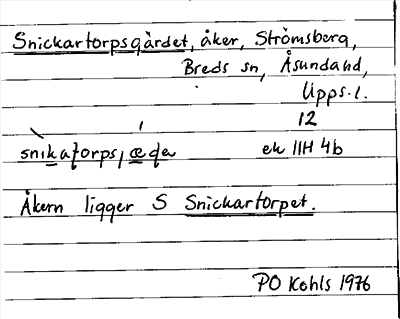 Snickartorpsgärdet, åker, Strömsberg,
Breds sn, Åsundahd,
Upps. l.
12
ek 11H 4b
Åkern ligger S Snickartorpet.
PO Kohls 1976